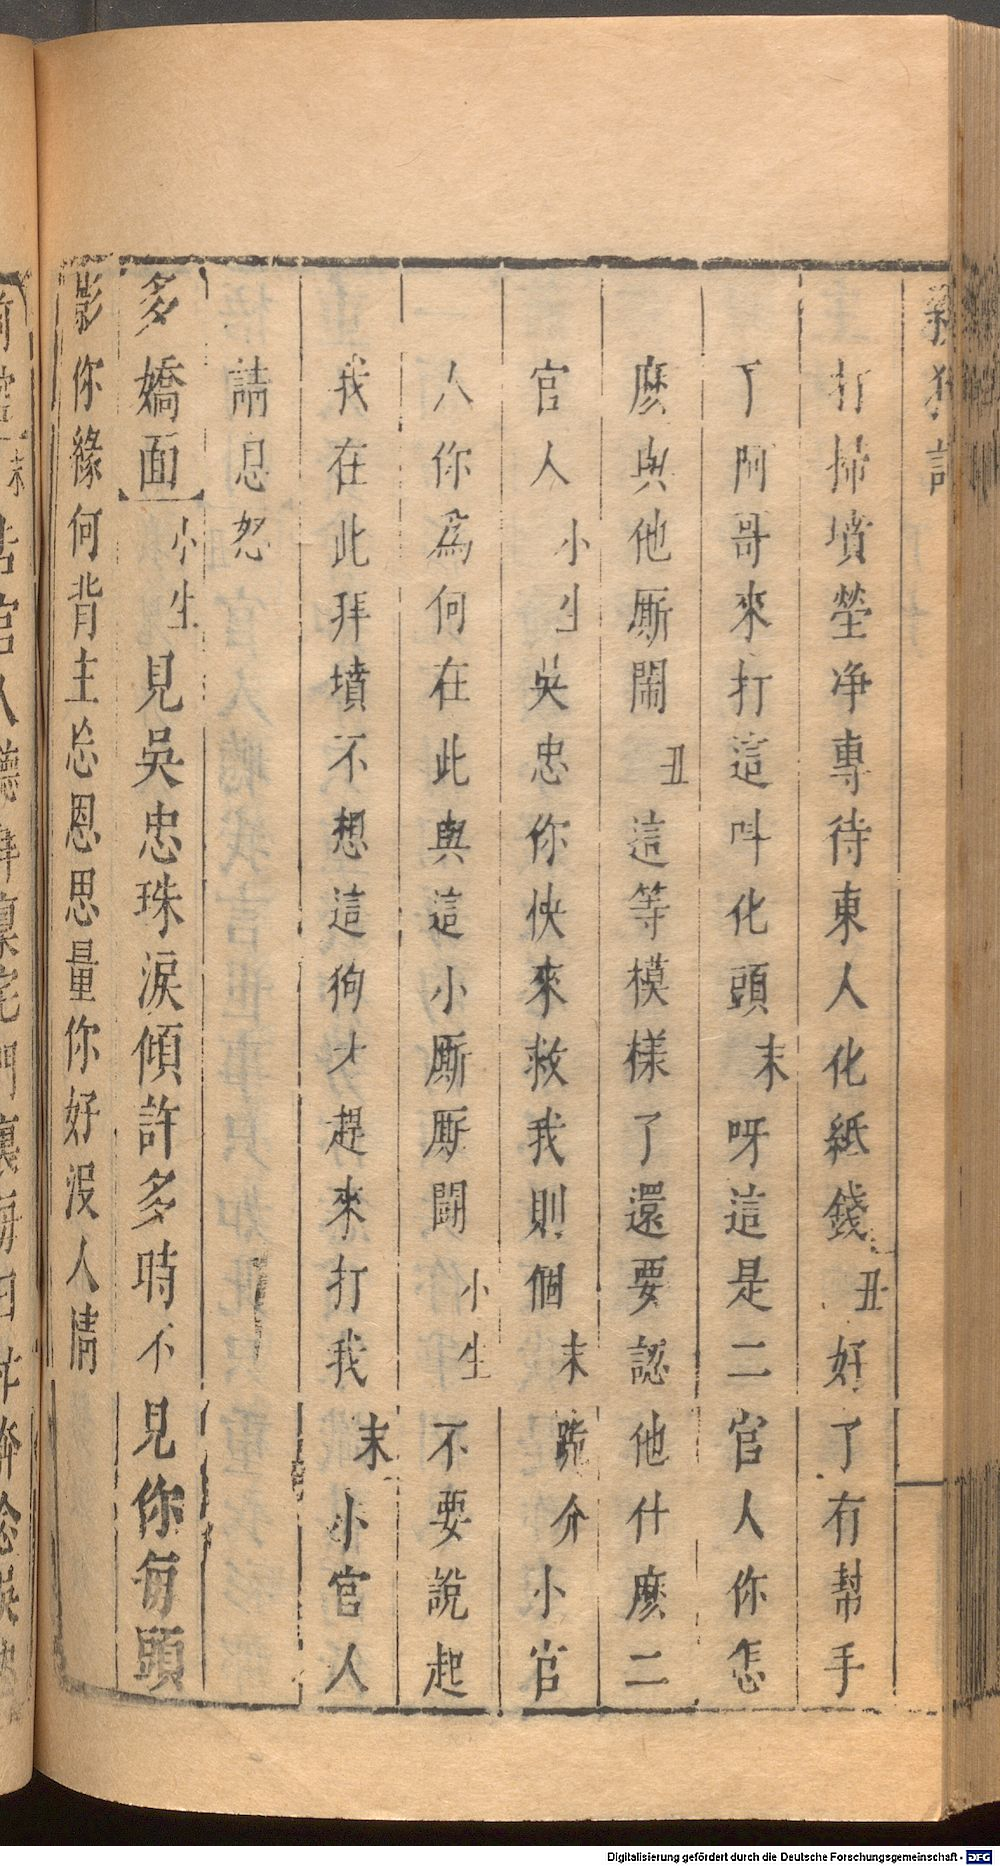 殺狗記
打掃墳塋净專待東人化紙錢丑好了有幇手
了阿哥來打這叫化頭末呀這是二官人你怎
麽與他厮鬧丑這等模樣了還要認他什麽二
官人小生吳忠你快來救我則個末跪介小官
人你爲何在此與這小厮厮鬪小生不要說起
我在此拜墳不想這狗才趕來打我末小官人
請息怒
多嬌面小生見吳忠珠淚傾許多時不見你每頭
影你緣何背主忘恩思量你好没人情
Digitalisierung gefördert durch die Deutsche Forschungsgemeinschaft - DFG